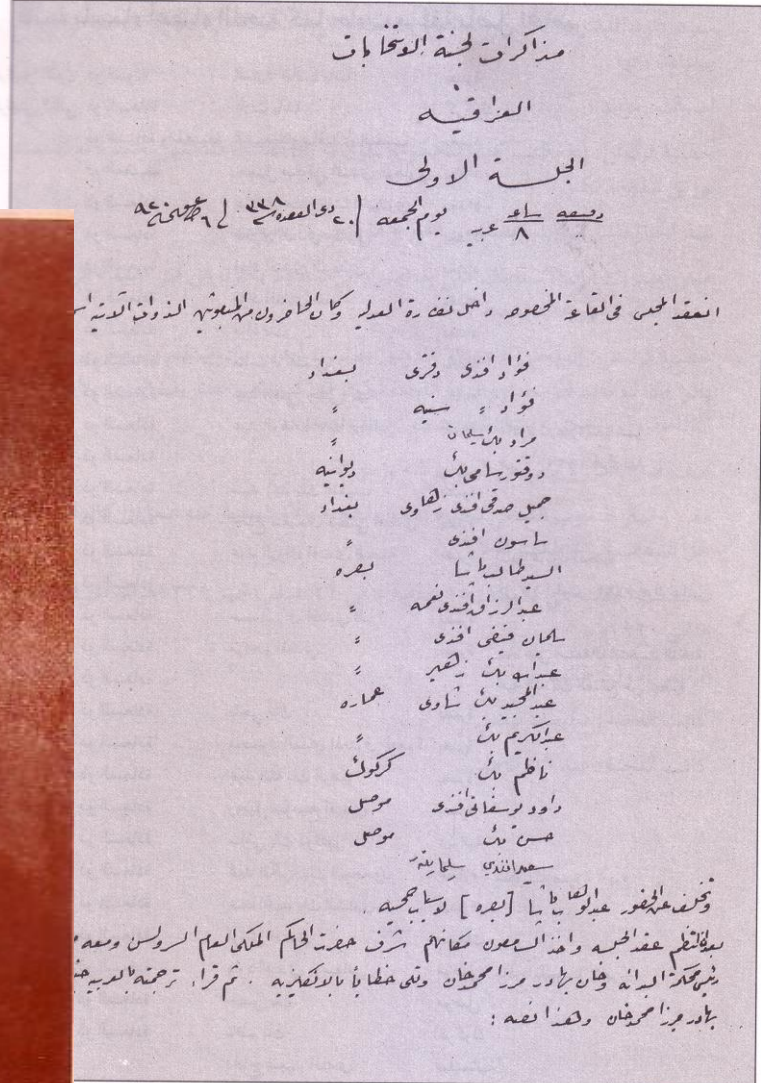 مذاكرات لجنة الانتخابات
العراقية
الجلسة الاولى
دقيقه ساعه
٨ عربي يوم الجمعه ٢٠ ذى القعده ٣٣٨ ٦ ٩٢٠
انعقد المجلس فى القاعة المخصوصه داخل نظارة العدليه وكان الحاضرون من المبعوثين الذوات الآتية
فؤاد افندى دفترى بغداد
فؤاد = سنيه =
مراد بك سليمان =
دوقتور سامى بك ديوانيه
جميل صدقى افندى زهاوى بغداد
ساسون افندى =
السيد طالب پاشا بصره
عبدالرزاق افندى نعمه =
سليمان فيضى افندى =
عبدالله بك زهير =
عبدالمجيد بك شاوى عماره
عبدالكريم بك =
ناظم بك كركوك
داود يوسفانى افندى موصل
حسن بك موصل
سعيد افندي سليمانية
وتخلف عن الحضور عبدالوهاب پاشا [بصره] لاسباب صحيه .
بعد ان انتظم عقد الجلسه واخذ السامعون مكانهم شرف حضرت الحاكم الملكى العام السر ولسن ومعه
رئيس محكمة البدائه وخان بهادر مرزا محمد خان وتلى خطاباً بالانكليزيه . ثم قراء ترجمته بالعربيه
بهادر مرزا محمد خان وهذا نصه :